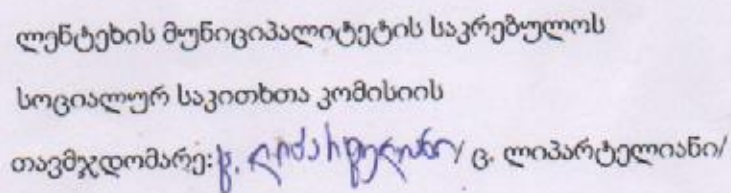 ლენტეხის მუნიციპალიტეტის საკრებულოს
სოციალურ საკითხთა კომისიის
თავმჯდომარე: ც. ლიპარტელიანი/ ც. ლიპარტელიანი/